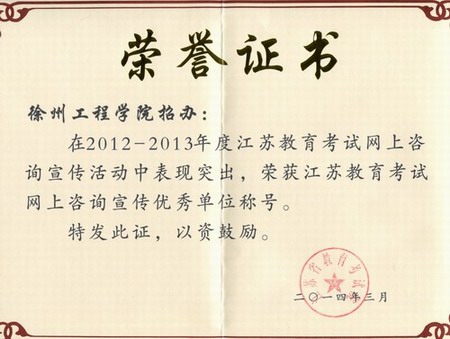 荣誉证书
徐州工程学院招办：
在2012-2013年度江苏教育考试网上咨
询宣传活动中表现突出，荣获江苏教育考试
网上咨询宣传优秀单位称号。
特发此证，以资鼓励。
江苏省教育考试
二〇一四年三月